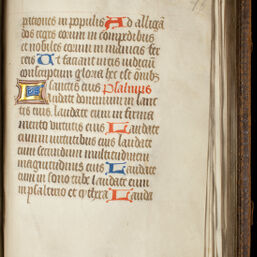 pationes in populis Ad alligā
dos reges eorum in compedibus
et nobiles eorum in manicis fer
reis Ut faciant in eis iudiciū
conscriptum gloria hec est oīnib9
sanctis eius Psalmus
Laudate dominum in sanc
tis eius. laudate eum in firma
mento virtutis eius Laudate
eum in virtutibus eius laudate
eum secundum multitudinem
magnitudinis eius Laudate
eum in sono tube laudate eum
in psalterio et cythara Lauda